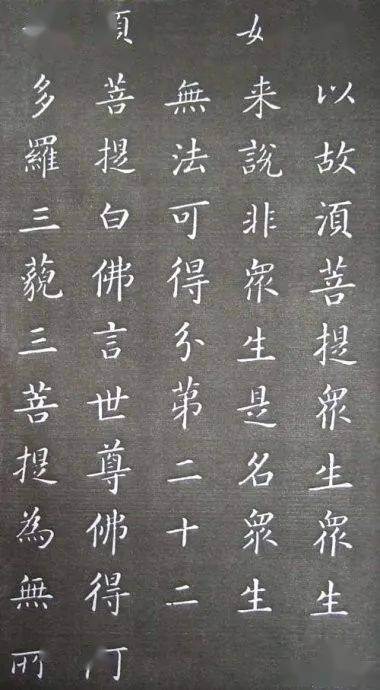 以故湏菩提眾生眾生
来說非眾生是名眾生
無法可得分第二十二
菩提白佛言世尊佛得
多羅三藐三菩提為無所